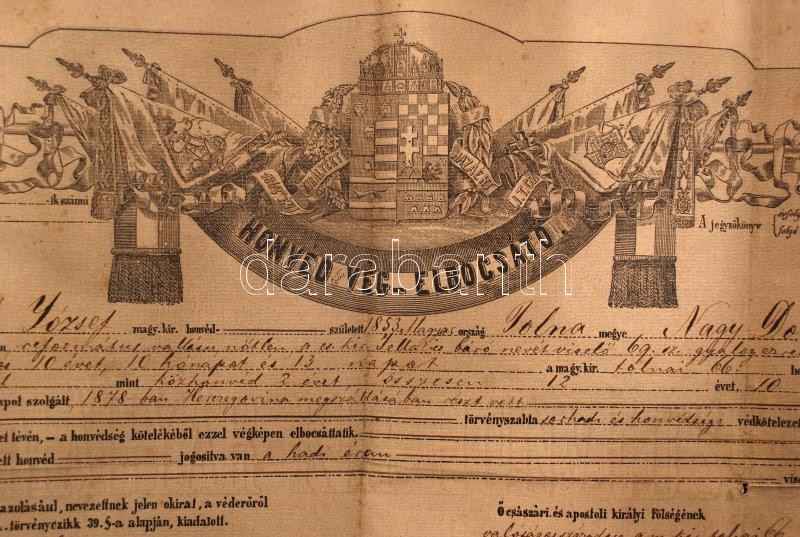 HAZÁÉRT
HAZÁÉRT
-ik számú
A jegyzőkönyv
HONVÉD VÉG-ELBOCSÁTÓ.
darabanth
József magy. kir. honvéd- született 1853 Magyar ország Tolna megye Nagy Do
református vallásu nőtlen a cs. kir. báró nevét viselő 69. sz. gyalogezre
10 évet, 10 honapot és 13 napot a magy. kir. tolnai 66.
mint közhonvéd 2 évet összesen 12 évet, 10
apot szolgált, 1878 ban Herczegovina megszállásában részt vett
törvényszabta sorhadi és honvédségi védkötelezet
et tévén, – a honvédség kötelékéből ezzel végképen elbocsáttatik.
ett honvéd jogositva van a hadi érem
azolásául, nevezettnek jelen okirat, a véderőről
törvényczikk 39. §-a alapján, kiadatott.
Ő császári és apostoli királyi Fölségének